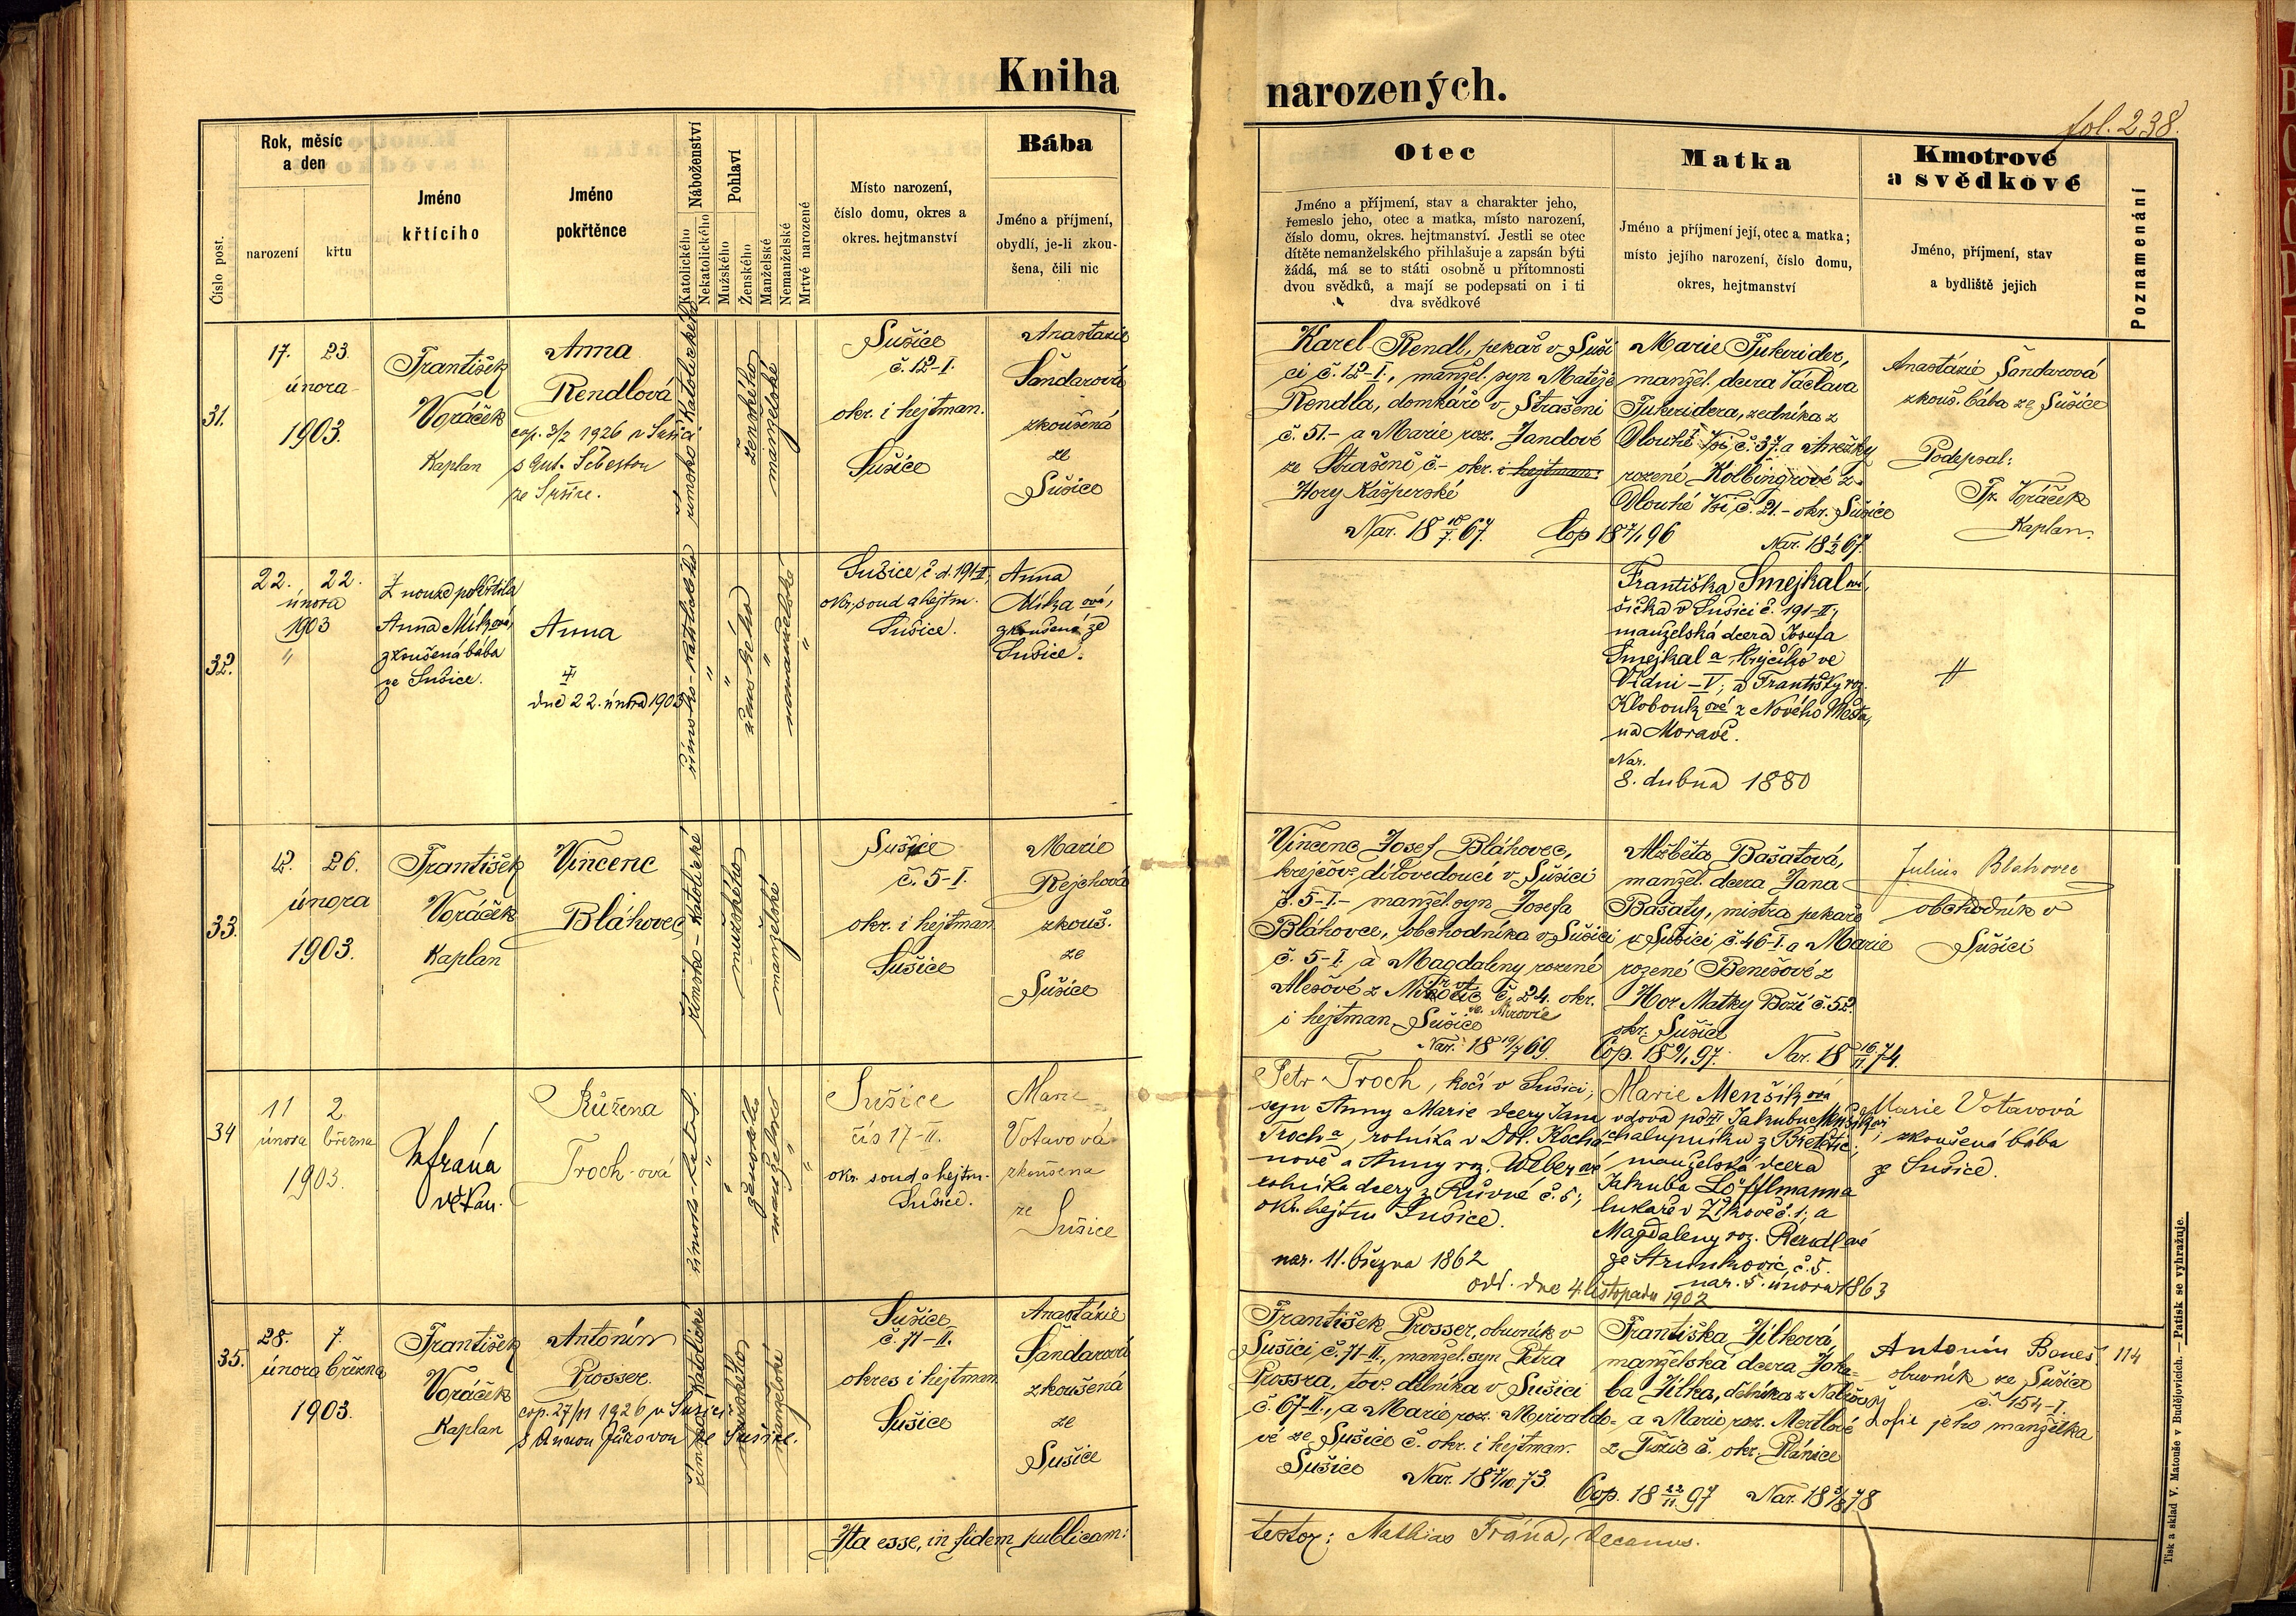 Kniha narozených.
fol. 238.
Číslo post.
Rok, měsíc
a den
narození
křtu
Jméno
křtícího
Jméno
pokřtěnce
Náboženství
Katolického
Nekatolického
Pohlaví
Mužského
Ženského
Manželské
Nemanželské
Mrtvé narozené
Místo narození,
číslo domu, okres a
okres. hejtmanství
Bába
Jméno a příjmení,
obydlí, je-li zkou-
šena, čili nic
Otec
Jméno a příjmení, stav a charakter jeho,
řemeslo jeho, otec a matka, místo narození,
číslo domu, okres. hejtmanství. Jestli se otec
dítěte nemanželského přihlašuje a zapsán býti
žádá, má se to státi osobně u přítomnosti
dvou svědků, a mají se podepsati on i ti
dva svědkové
Matka
Jméno a příjmení její, otec a matka;
místo jejího narození, číslo domu,
okres, hejtmanství
Kmotrové
a svědkové
Jméno, příjmení, stav
a bydliště jejich
Poznamenání
31.
17. 23.
února
1903.
František
Voráček
Kaplan
Anna
Rendlová
cop. 3/2 1926 v Sušici
s Ant. Šebestou
ze Sušice.
římsko-Katolické
ženského
manželské
Sušice
č. 12-I.
okr. i hejtman.
Sušice
Anastazie
Šandarová
zkoušená
ze
Sušice
Karel Rendl, pekař v Suši
ci č. 12-I., manžel. syn Matěje
Rendla, domkáře v Strašeni
č. 51.- a Marie roz. Jandové
ze Strašeně č- okr. i hejtman.
Hory Kašperské
Nar. 18 10/7. 67. Cop 18 7/1 96
Marie Tukerider,
manžel. dcera Václava
Tukeridera, zedníka z
Dlouhé Vsi č. 37. a Anežky
rozené Kolbingrové z
Dlouhé Vsi č. 21.- okr. Sušice
Nar. 18 1/2 67.
Anastázie Šandarová
zkouš. bába ze Sušice
Podepsal:
Fr. Voráček
Kaplan.
32.
22. 22.
února
1903
"
Z nouze pokřtila
Anna Míková,
zkoušená bába
ze Sušice.
Anna
dne 22. února 1903
římsko-katolického
"
"
ženského
"
nemanželské
"
Sušice č. d. 191-II,
okr. soud a hejtm.
Sušice.
Anna
Míková,
zkoušená ze
Sušice.
Františka Smejkalová,
v Sušici č. 191-II;
manželská dcera Josefa
Smejkala, krejčího ve
Vídni – V; a Františky roz.
Kloboukové z Nového Města,
na Moravě.
Nar.
8. dubna 1880
33.
12. 26.
února
1903.
František
Voráček
Kaplan
Vincenc
Bláhovec
Římsko-Katolické
mužského
manželské
Sušice
č. 5-I.
okr. i hejtman
Sušice
Marie
Rejchová
zkouš.
ze
Sušice
Vincenc Josef Bláhovec,
krejčov. dílovedoucí v Sušici
č. 5-I.- manžel. syn Josefa
Bláhovce, obchodníka v Sušici
č. 5-I. a Magdaleny rozené
Alešové z č. 24. okr.
i hejtman Sušice
Nar. 18 19/7 69.
Alžběta Bašatová,
manžel. dcera Jana
Bašaty, mistra pekaře
v Sušici č. 46-I. a Marie
rozené Benešové z
Hor Matky Boží č. 52.
okr. Sušice
Cop. 18 9/1 97. Nar. 18 16/11 74.
Julius Blahovec
obchodník v
Sušici
34
11 2.
února března
1903.
Fráňa
děkan.
Růžena
Trochová
římsko-katol.
"
"
ženského
"
manželské
"
Sušice
čís 17-II.
okr. soud a hejtm.
Sušice.
Marie
Votavová
zkoušena
ze
Sušice
Petr Troch, kočí v Sušici;
syn Anny Marie dcery Jana
Trocha, rolníka v Dol. Kocha-
nově a Anny roz. Weberové
rolníka dcery z Růvné č. 5;
okr. hejtm Sušice.
nar. 11. března 1862
Marie Menšíková
vdova po Jakubu Menšíkovi
chalupníku z
manželská dcera
Jakuba Löfflmanna
lukaře v Žíkově č. 1; a
Magdaleny roz. Rendlové
ze Strunkovic, č. 5.
nar. 5. února 1863
odd. dne 4. listopadu 1902
Marie Votavová
zkoušená bába
ze Sušice.
35.
28. 7.
února března
1903.
František
Voráček
Kaplan
Antonín
Prosser.
cop. 27/11 1926 v Sušici
s Annou Jůzovou ze Sušice.
Římsko-Katolické
mužského
manželské
Sušice
č. 71-II.
okres i hejtman
Sušice
Anastázie
Šandarová
zkoušená
ze
Sušice
František Prosser, obuvník v
Sušici č. 71-II., manžel. syn Petra
Prossra, tov. dělníka v Sušici
č. 67-II., a Marie roz. Mirvaldo-
vé ze Sušice č. okr. i hejtman.
Sušice Nar. 18 7/10 73.
Františka Jílková
manželská dcera Jaku-
ba Jílka, dělníka z
a Marie roz. Mertlové
z č. okr. Plánice
Cop. 18 22/11 97 Nar. 18 5/8 78
Antonín Beneš
obuvník ze Sušice
č. 154-I.
Žofie jeho manželka
114
Ita esse, in fidem publicam:
testor: Mathias Fráňa, decanus.
Tisk a sklad V. Matouše v Budějovicích. — Patisk se vyhražuje.